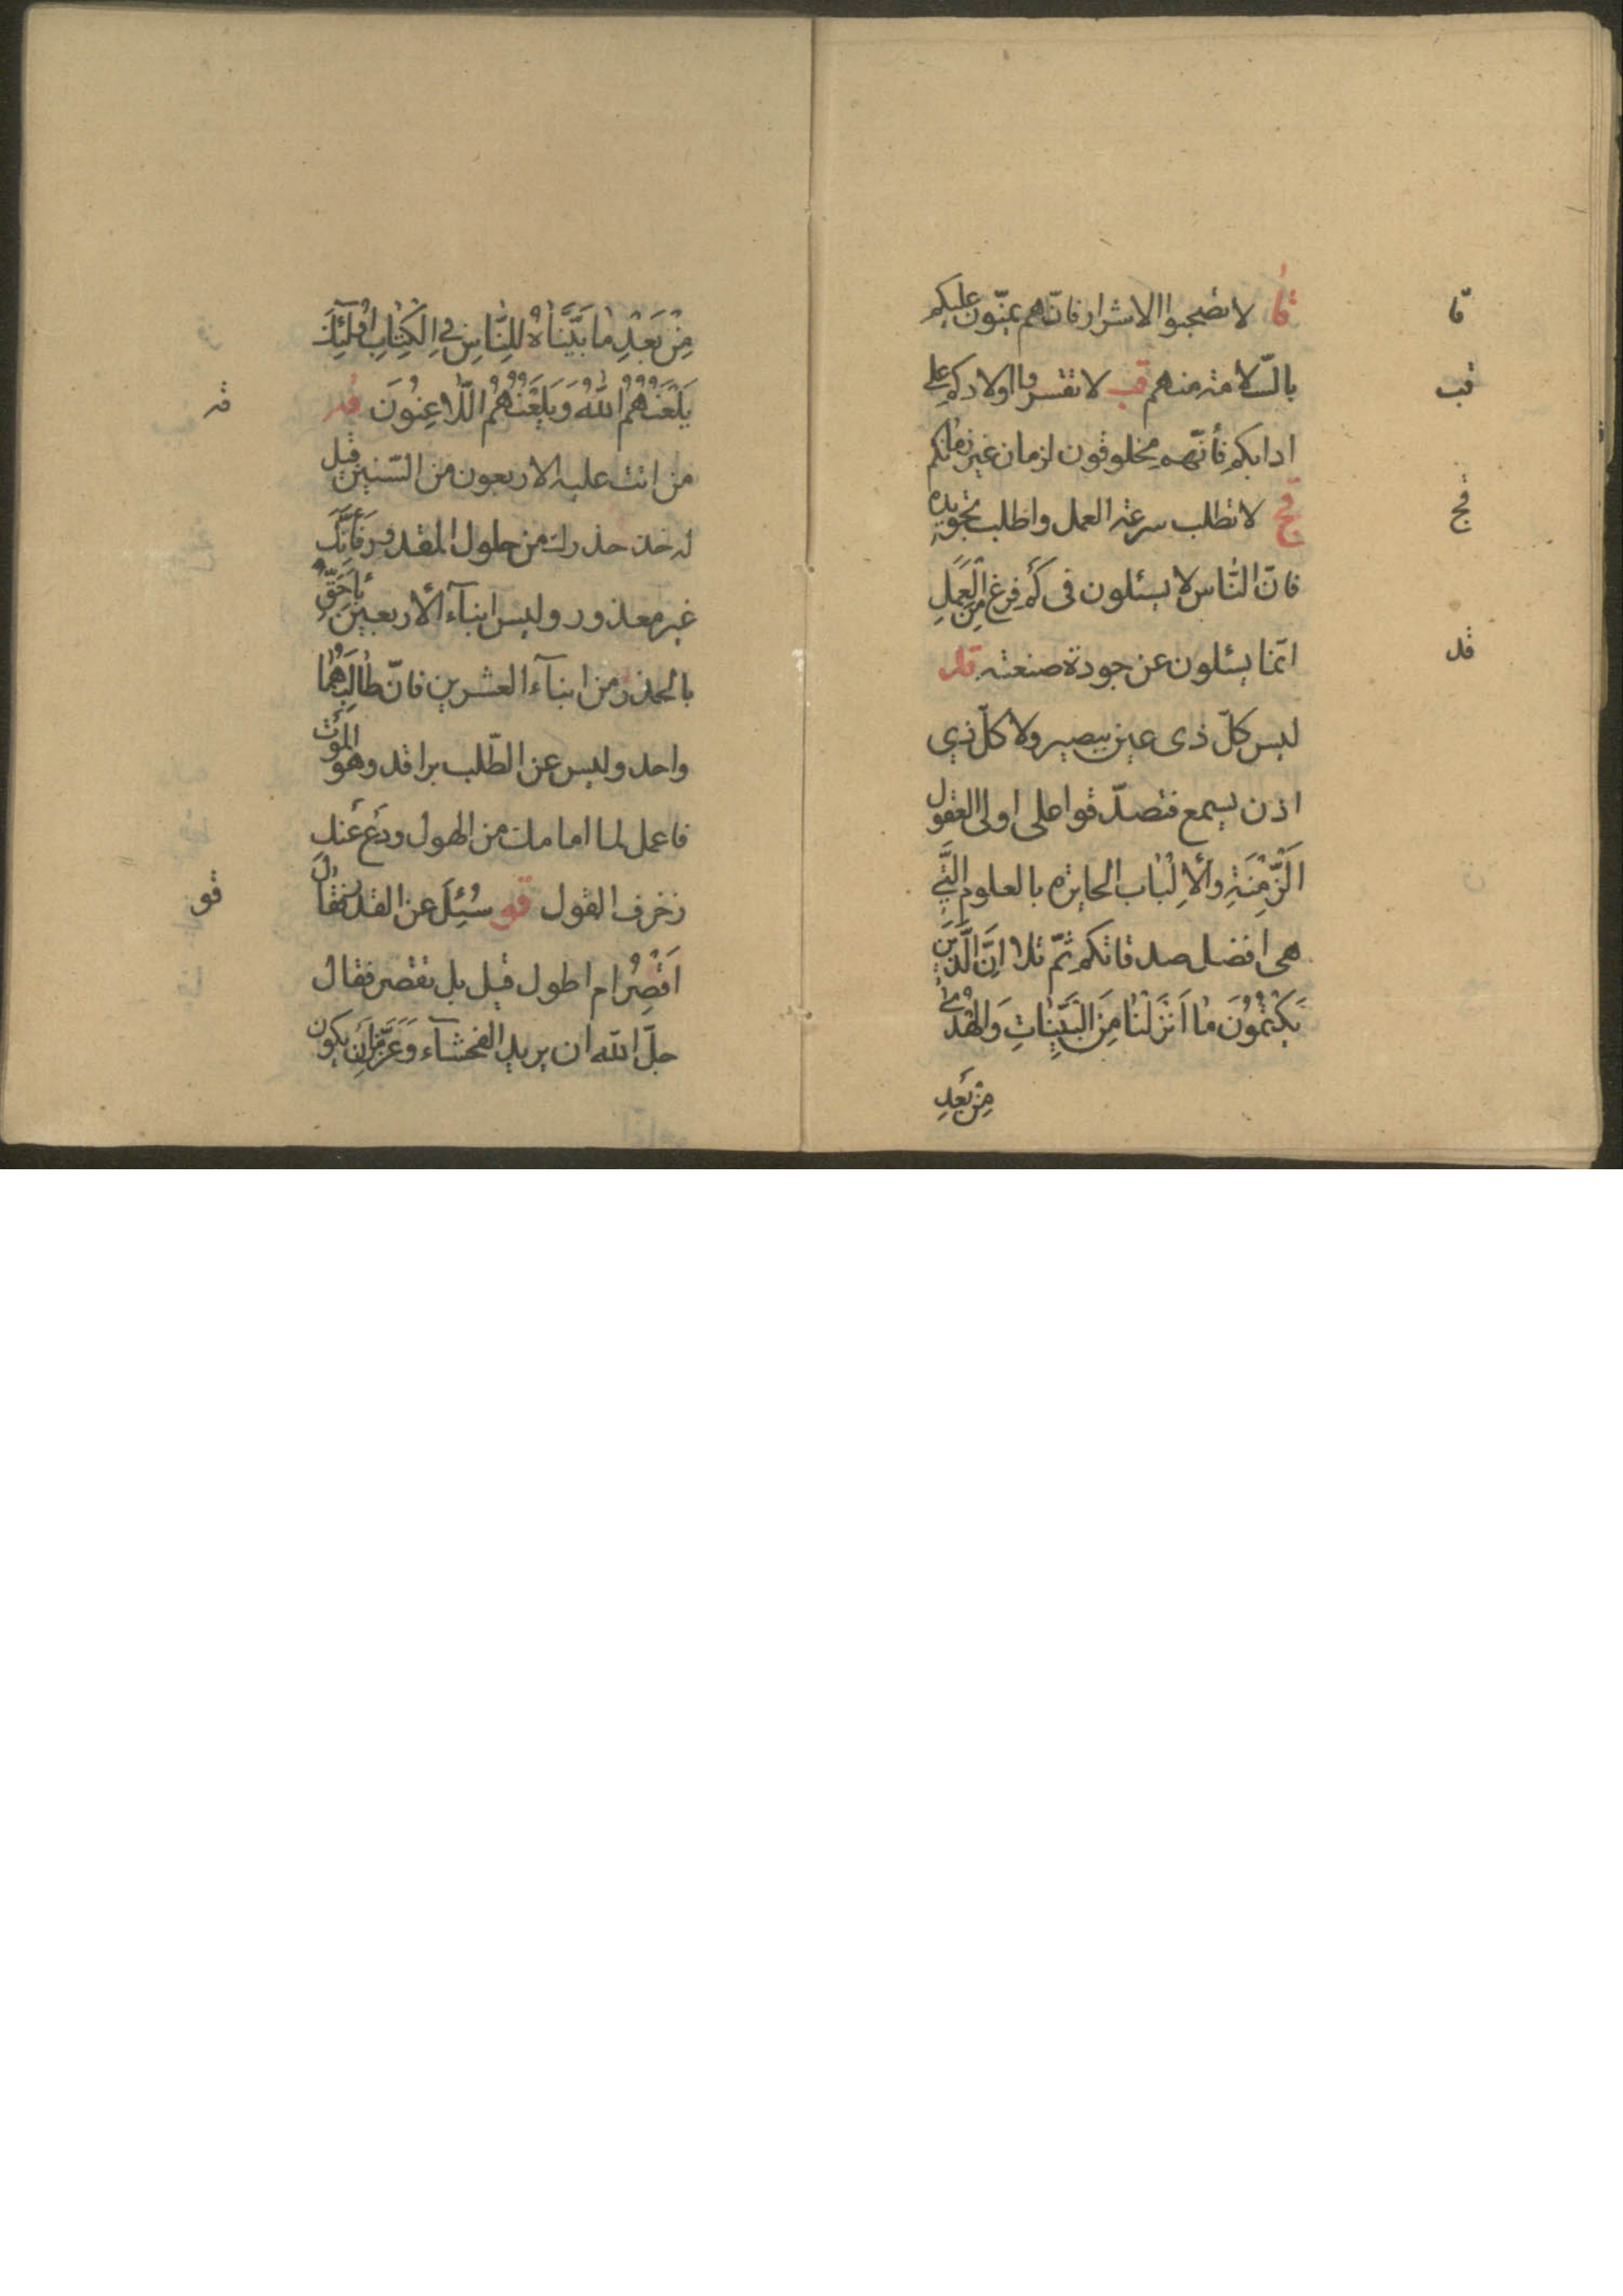 قا لا تصحبوا الاشرار فانّهم يمنّون عليكم
قا
بالسّلامة منهم قب لا تقسروا اولادكم على
قب
ادابكم فأنّهم مخلوقون لزمان غير زمانكم
قج لا تطلب سرعة العمل واطلب تجويده
قج
فانّ النّاس لا يسئلون فى كَمْ فرغ مِنَ الْعَمَلِ
انّما يسئلون عن جودة صنعته قد
قد
ليس كلّ ذى عين يبصير ولا كلّ ذي
اذن يسمع فتصدّقوا على اولى العقول
الَزَّمِنَةِ وألاِلْبٰاب الحايره بالعلوم الَّتي
هى افضل صدقاتكم ثمّ تلا اِنَّ الَّذينَ
يَكْتُمُونَ مٰا اَنْزَلْنٰا مِنَ الْبَيِّنٰاتِ وَالْهُدٰى
مِنْ بَعْدِ
مِنْ بَعْدِ مٰا بَيَّنّاهُ لِلنّٰاسِ فِي الْكِتٰابِ اُولٰۤئِكَ
يَلْعَنُهُمُ اللّٰهُ وَيَلْعَنُهُمُ اللّٰاعِنُونَ قه
قه
من اتت عليه الاربعون من السّنين قيل
له خذ حذرك من حلول المقدور فَأِنَّكَ
غير معذور وليس ابنآء ألأربعين بأَحَقِّ
بالحذر من ابنآء العشرين فانّ طٰالِبَهُمٰا
واحد وليس عن الطّلب براقد وهو الموْت
فاعمل لما امامك من الهول ودَعْ عَنك
زخرف القول قو سُئِلَ عن القدر فقٰال
قو
اَقْصِرُ ام اطول قيل بل تقصر فقال
جلّ اللّه ان يريد الفحشآء وَعَزَّ مِنْ اَنْ يكون